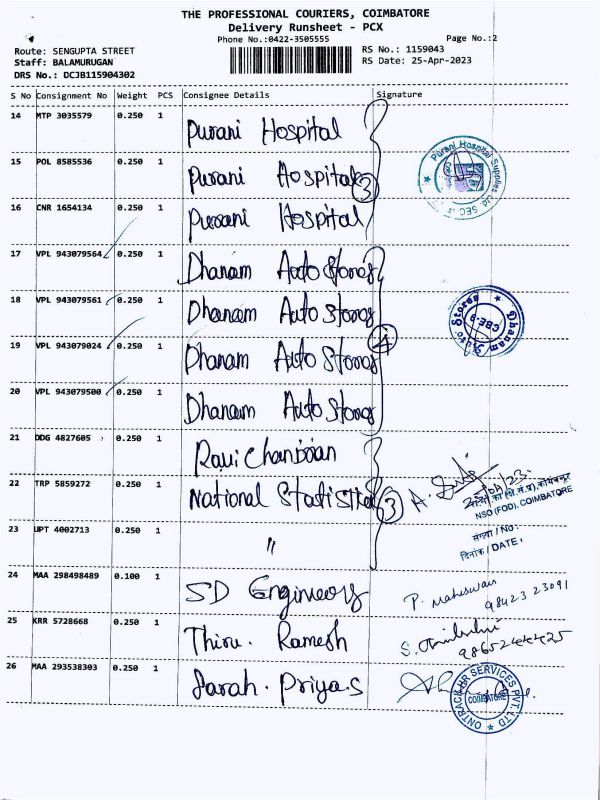 THE PROFESSIONAL COURIERS, COIMBATORE
Delivery Runsheet - PCX
Phone No.:0422-3505555
Page No.:2
Route: SENGUPTA STREET
RS No.: 1159043
Staff: BALAMURUGAN
RS Date: 25-Apr-2023
DRS No.: DCJB115904302
S No Consignment No Weight PCS Consignee Details Signature
14 MTP 3035579 0.250 1 Purani Hospital
15 POL 8585536 0.250 1 Purani Hospital 3
Purani Hospital Supplies Ltd SEC
16 CNR 1654134 0.250 1 Purani Hospital
17 VPL 943079564 0.250 1 Dhanam Auto Stores
18 VPL 943079561 0.250 1 Dhanam Auto Stores
Dhanam Auto Stores CBE-9
19 VPL 943079024 0.250 1 Dhanam Auto Stores 4
20 VPL 943079500 0.250 1 Dhanam Auto Stores
21 DDG 4827605 0.250 1 Ravi Chandran
22 TRP 5859272 0.250 1 National Statistical 3
NSO (FOD), COIMBATORE
संख्या / NO :
दिनांक / DATE :
23 UPT 4002713 0.250 1 "
24 MAA 298498489 0.100 1 SD Engineers P. Maheswari
98423 23091
25 KRR 5728668 0.250 1 Thiru. Ramesh S.
9865244425
26 MAA 293538303 0.250 1 Sarah. Priya.S
ONTRACK HR SERVICES PVT. LTD COIMBATORE